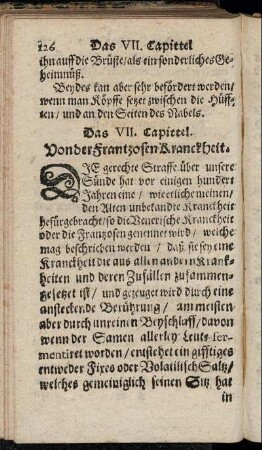 126 Das VII. Capittel
ihn auff die Brüste/ als ein sonderliches Ge-
heimnüß.
Beydes kan aber sehr befördert werden/
wenn man Köpffe setzet zwischen die Hüff-
ten/ und an den Seiten des Nabels.
Das VII. Capittel.
Von der Frantzosen Kranckheit.
DIE gerechte Straffe über unsere
Sünde hat vor einigen hundert
Jahren eine/ wie etliche meinen/
den Alten unbekandte Kranckheit
herfürgebracht/ so die Venerische Kranckheit
oder die Frantzosen genennet wird/ welche
mag beschrieben werden/ daß sie sey eine
Kranckheit die aus allen andern Kranck-
heiten und deren Zufällen zusammen-
gesetzet ist/ und gezeuget wird durch eine
ansteckende Berührung/ am meisten
aber durch unreinen Beyschlaff/ davon
wenn der Samen allerley Leute fer-
mentiret worden/ entstehet ein gifftiges
entweder Fixes oder Volatilisch Saltz/
welches gemeiniglich seinen Sitz hat
in